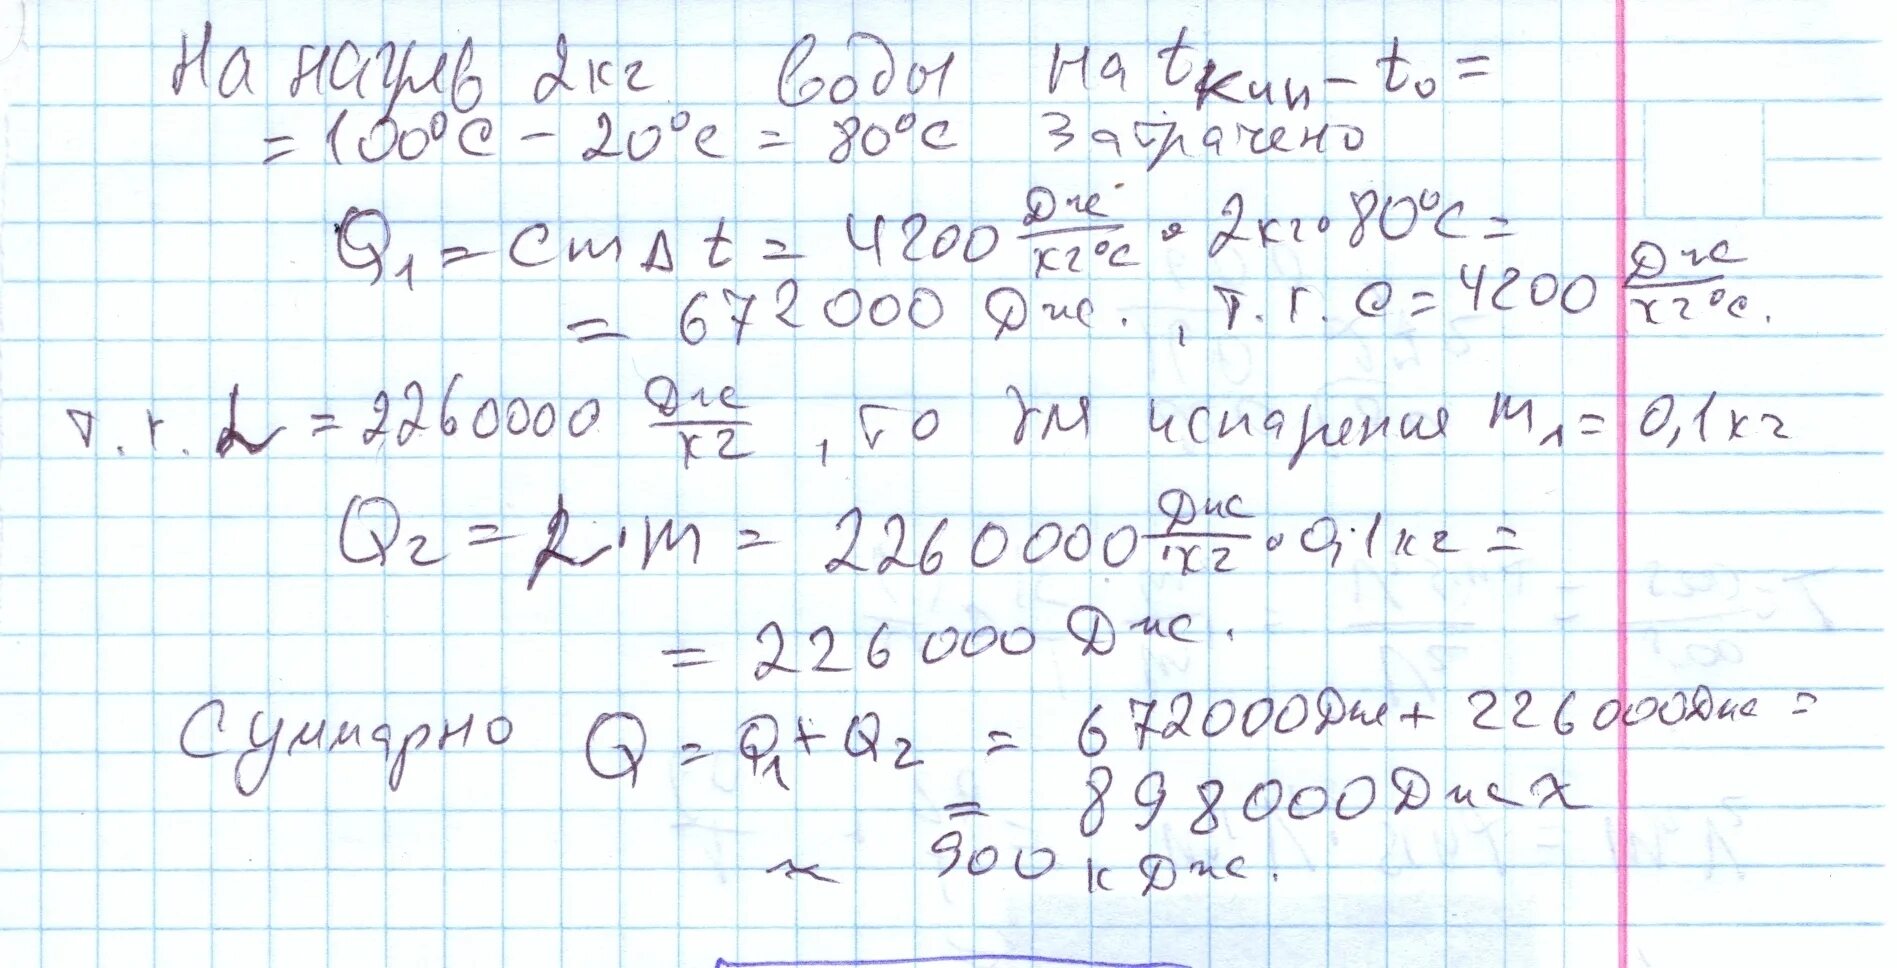 На нагрев 2кг воды на tкип – t₀ =
= 100°С – 20°С = 80°С затрачено
Q₁ = cmΔt = 4200 Дж/кг°С · 2кг · 80°С =
= 672000 Дж. , т.к. с = 4200 Дж/кг°С.
т.к. L = 2260000 Дж/кг , то для испарения m₁ = 0,1кг
Q₂ = L · m = 2260000 Дж/кг · 0,1кг =
= 226000 Дж.
Суммарно Q = Q₁ + Q₂ = 672000Дж + 226000Дж =
= 898000Дж ≈
≈ 900 кДж.